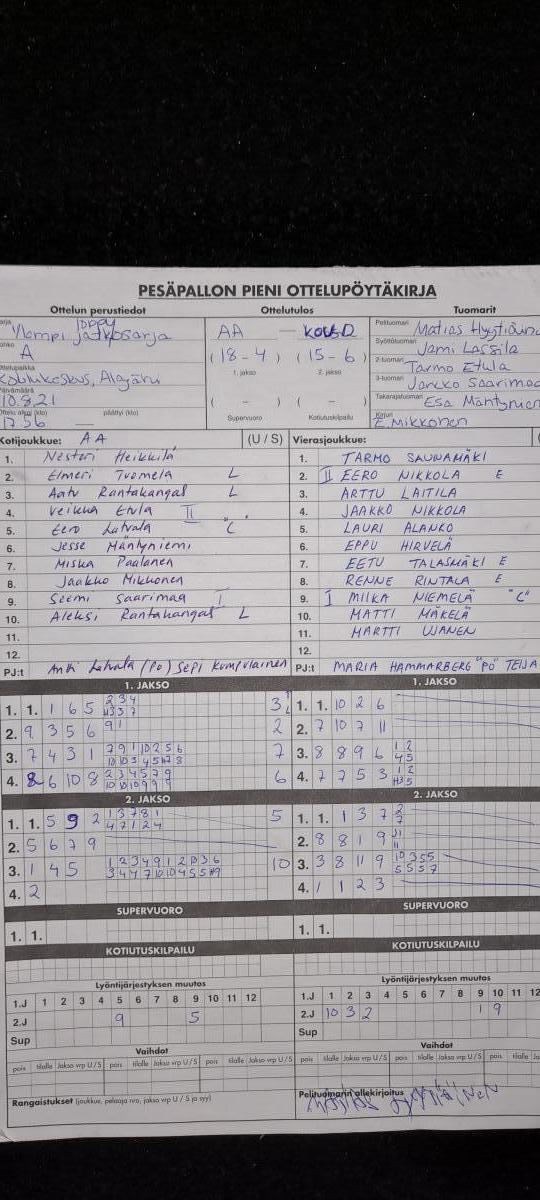 PESÄPALLON PIENI OTTELUPÖYTÄKIRJA
Ottelun perustiedot Ottelutulos Tuomarit
Ylempi loppu jatkosarja
A
AA — KOU D
(18 - 4) (15 - 6)
1. jakso 2. jakso
( - ) ( - )
Supervuoro Kotiutuskilpailu
Ottelupaikka
Alajärvi
Päivämäärä
10.8.21
Ottelu alkoi (klo) päättyi (klo)
17 56 —
Pelituomari Matias
Syöttötuomari Jami Lassila
2-tuomari Tarmo Etula
3-tuomari Jarkko Saarimaa
Takarajatuomari Esa
Kirjuri E. Mikkonen
Kotijoukkue: AA (U / S)
1. Nestori Heikkilä
2. Elmeri Tuomela L
3. Aatu Rantakangas L
4. Veikka Etula II
5. Eero Latvala "C"
6. Jesse Mäntyniemi
7. Miska Paalanen
8. Jaakko Mikkonen
9. Seemi Saarimaa I
10. Aleksi Rantakangas L
11.
12.
PJ:t Antti Latvala (PO) Sepi Kumpulainen
Vierasjoukkue:
1. TARMO SAUNAMÄKI
2. II EERO NIKKOLA E
3. ARTTU LAITILA
4. JAAKKO NIKKOLA
5. LAURI ALANKO
6. EPPU HIRVELÄ
7. EETU TALASMÄKI E
8. RENNE RINTALA E
9. I MIIKA NIEMELÄ "C"
10. MATTI MÄKELÄ
11. MARTTI UJANEN
12.
PJ:t MARIA HAMMARBERG "PO" TEIJA
1. JAKSO
1. 1. 1 6 5 2 3 4
2. 9 3 5 6 9 1 2
3. 7 4 3 1 7 9 1 10 2 5 6 7
4. 8 6 10 8 2 3 4 5 7 9 6
1. JAKSO
1. 1. 10 2 6
2. 7 10 7 11
3. 8 8 9 6 1 2
4 5
4. 7 7 5 3 1 2
2. JAKSO
1. 1. 5 9 2 1 3 7 8 1 5
4 7 1 2 4
2. 5 6 7 9
3. 1 4 5 1 2 3 4 9 1 2 10 3 6 10
4. 2
2. JAKSO
1. 1. 1 3 7 2
7
2. 8 8 1 9 11
11
3. 3 8 11 9 10 3 5 5
5 5 5 7
4. 1 1 2 3
SUPERVUORO
1. 1.
SUPERVUORO
1. 1.
KOTIUTUSKILPAILU
KOTIUTUSKILPAILU
Lyöntijärjestyksen muutos
1.J 1 2 3 4 5 6 7 8 9 10 11 12
2.J 9 5
Sup
Lyöntijärjestyksen muutos
1.J 1 2 3 4 5 6 7 8 9 10 11 12
2.J 10 3 2 1 9
Sup
Vaihdot
pois tilalle Jakso vrp U / S pois tilalle Jakso vrp U / S pois tilalle Jakso vrp U / S
Vaihdot
pois tilalle Jakso vrp U / S pois tilalle Jakso vrp U / S pois tilalle
Rangaistukset (joukkue, pelaaja nro, jakso vrp U / S ja syy)
Pelituomarin allekirjoitus